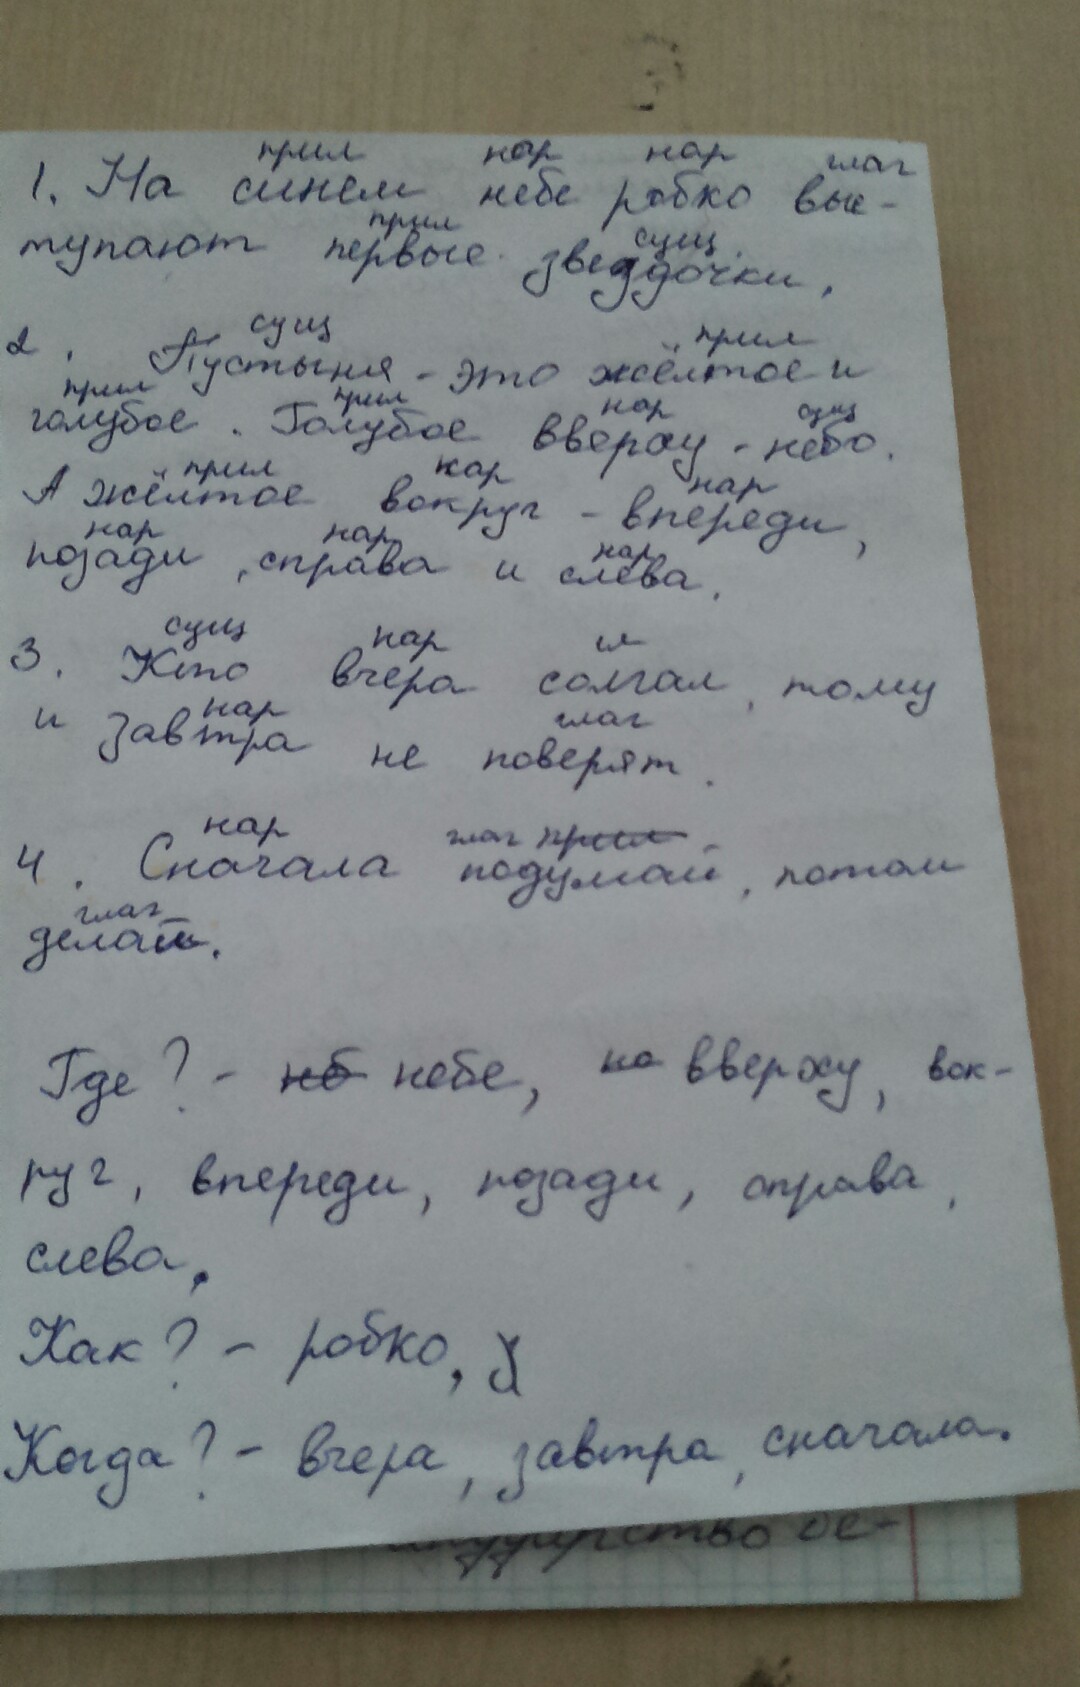 прил нар нар глаг
1. На синем небе робко выс-
прил сущ
тупают первые звездочки.
сущ прил
2. Пустыня - это жёлтое и
прил прил нар сущ
голубое. Голубое вверху - небо.
прил нар нар
А жёлтое вокруг - впереди,
нар нар нар
позади, справа и слева.
сущ нар
3. Кто вчера солгал, тому
нар глаг
и завтра не поверят.
нар глаг прил
4. Сначала подумай, потом
глаг
делай.
Где? - небе, вверху, вок-
руг, впереди, позади, справа,
слева.
Как? - робко,
Когда? - вчера, завтра, сначала.